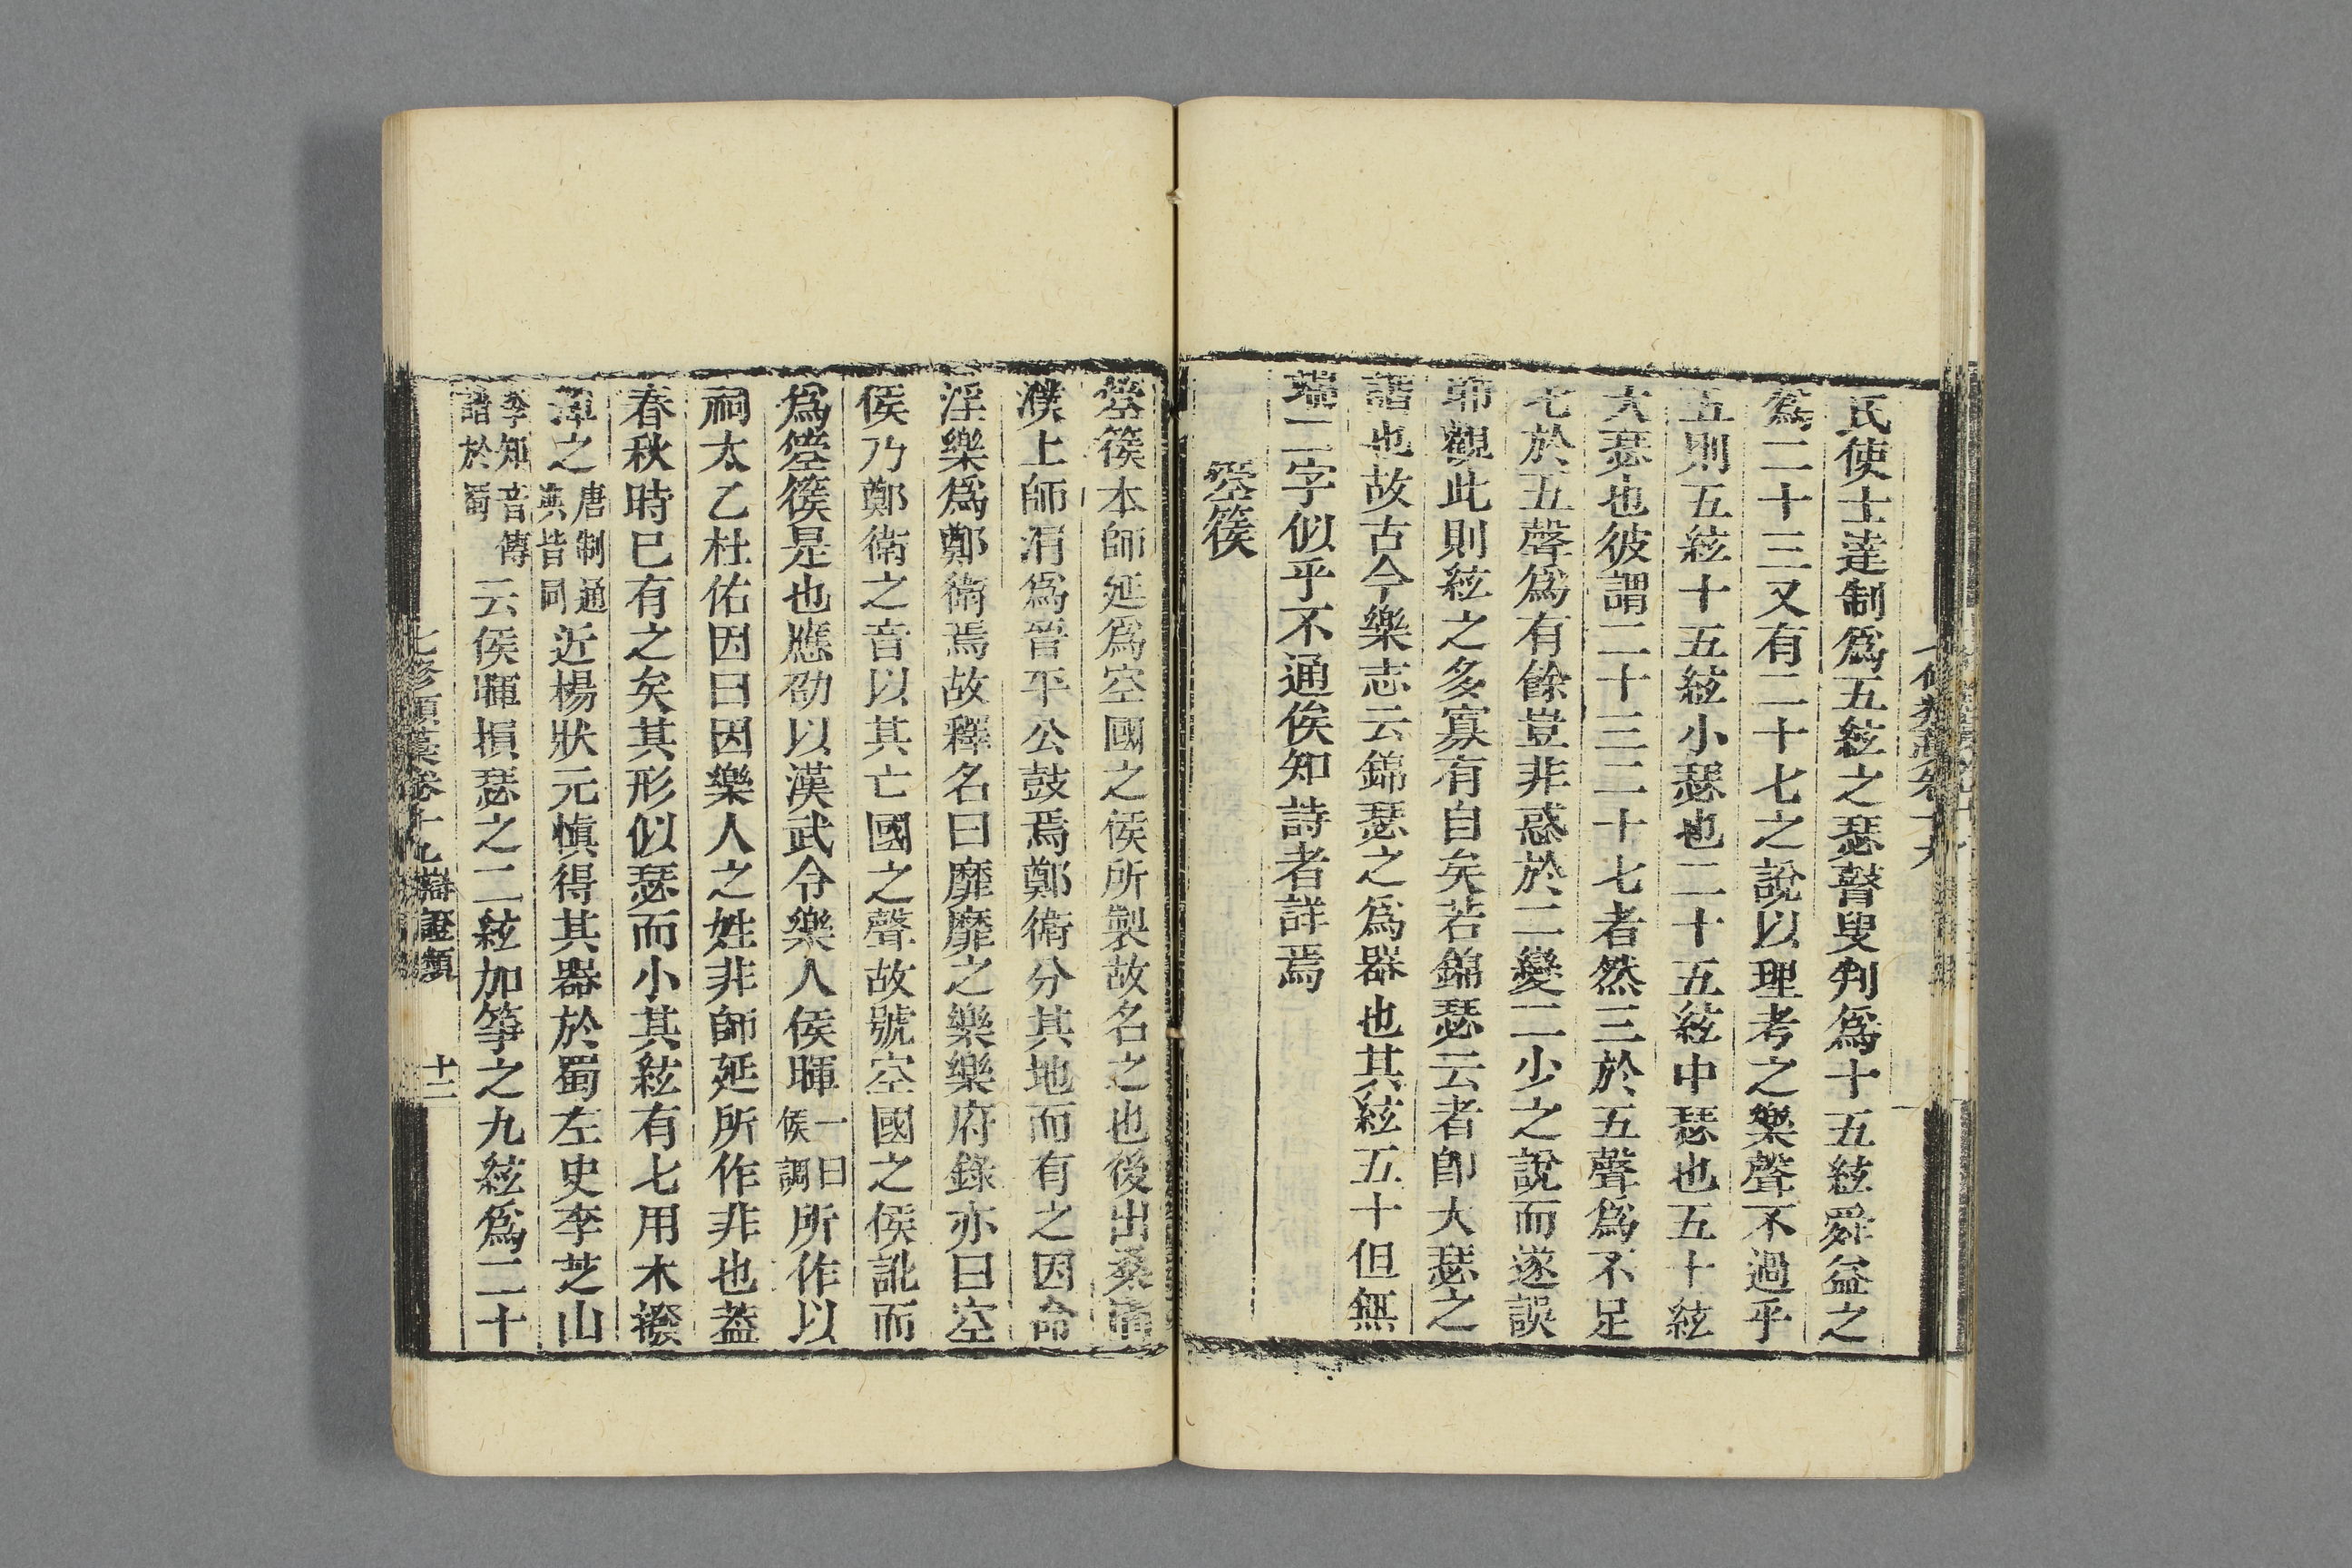 氏使士達制爲五絃之瑟瞽叟判爲十五絃舜益之
爲二十三又有二十七之說以理考之樂聲不過乎
五則五絃十五絃小瑟也二十五絃中瑟也五十絃
大瑟也彼謂二十三二十七者然三於五聲爲不足
七於五聲爲有餘豈非惑於二變二少之說而遂誤
耶觀此則絃之多寡有自矣若錦瑟云者卽大瑟之
譜也故古今樂志云錦瑟之爲器也其絃五十但無
端二字似乎不通俟知詩者詳焉
箜篌
箜篌本師延爲空國之侯所製故名之也後出桑間
濮上師涓爲晉平公鼓焉鄭衛分其地而有之因命
淫樂爲鄭衛焉故釋名曰靡靡之樂樂府錄亦曰空
侯乃鄭衛之音以其亡國之聲故號空國之侯訛而
爲箜篌是也應劭以漢武令樂人侯暉一曰侯調所作以
祠太乙杜佑因曰因樂人之姓非師延所作非也蓋
春秋時已有之矣其形似瑟而小其絃有七用木撥
彈之唐制通典皆同近楊狀元慎得其器於蜀左史李芝山
李知音傳譜於蜀云侯暉損瑟之二絃加箏之九絃爲二十
七修類藁卷十九 辯證類 十二